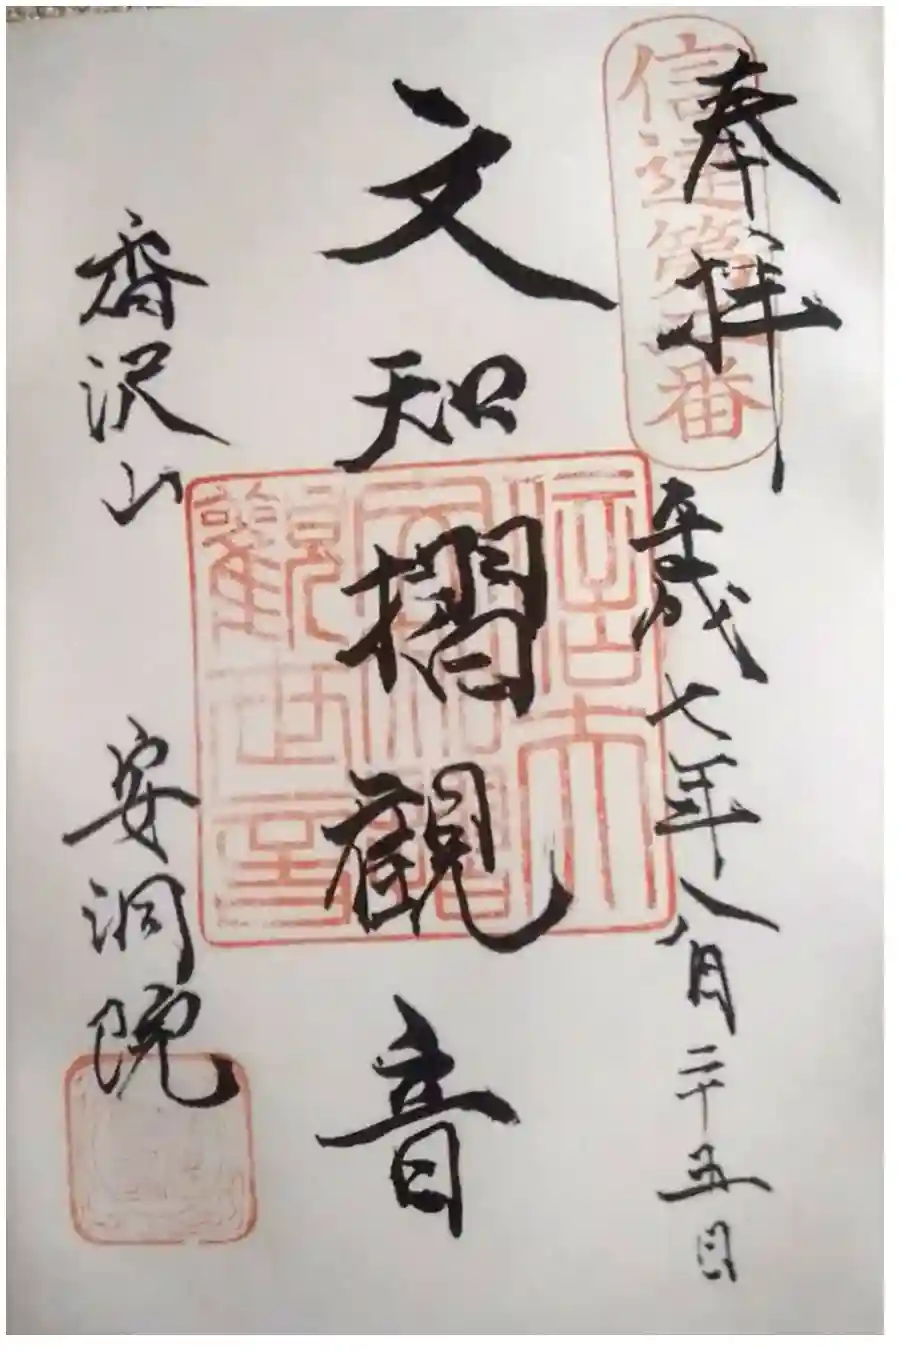 奉拝
信達第二番
平成七年八月二十五日
文知摺観音
香沢山
安洞院